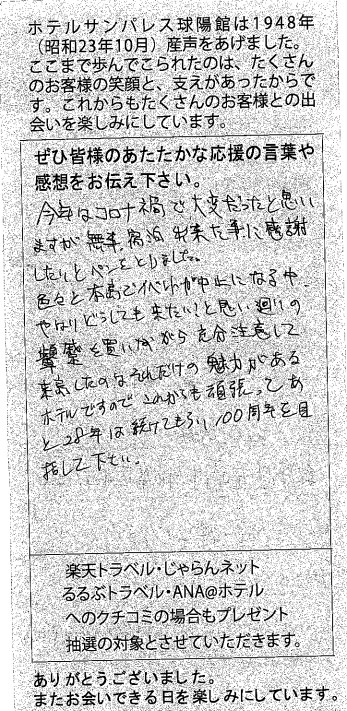 ホテルサンパレス球陽館は1948年
（昭和23年10月）産声をあげました。
ここまで歩んでこられたのは、たくさん
のお客様の笑顔と、支えがあったからで
す。これからもたくさんのお客様との出
会いを楽しみにしています。
ぜひ皆様のあたたかな応援の言葉や
感想をお伝え下さい。
今年はコロナ禍で大変だったと思い
ますが無事宿泊出来た事に感謝
したいとペンをとりました。
色々と本島でイベントが中止になる中、
やはりどうしても来たい!と思い廻りの
顰蹙を買いながら充分注意して
来島したのはそれだけの魅力がある
ホテルですのでこれからも頑張ってあ
と28年は続けてもらい100周年を目
指して下さい。
楽天トラベル・じゃらんネット
るるぶトラベル・ANA@ホテル
へのクチコミの場合もプレゼント
抽選の対象とさせていただきます。
ありがとうございました。
またお会いできる日を楽しみにしています。